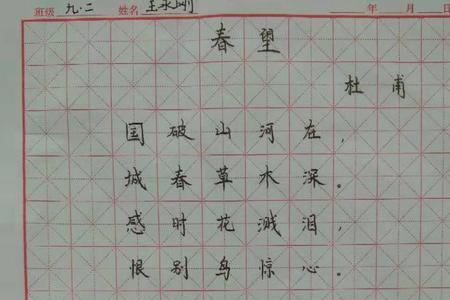 班级 九.二 姓名 王永刚 年 月 日
春望
杜甫
国破山河在，
城春草木深。
感时花溅泪，
恨别鸟惊心。